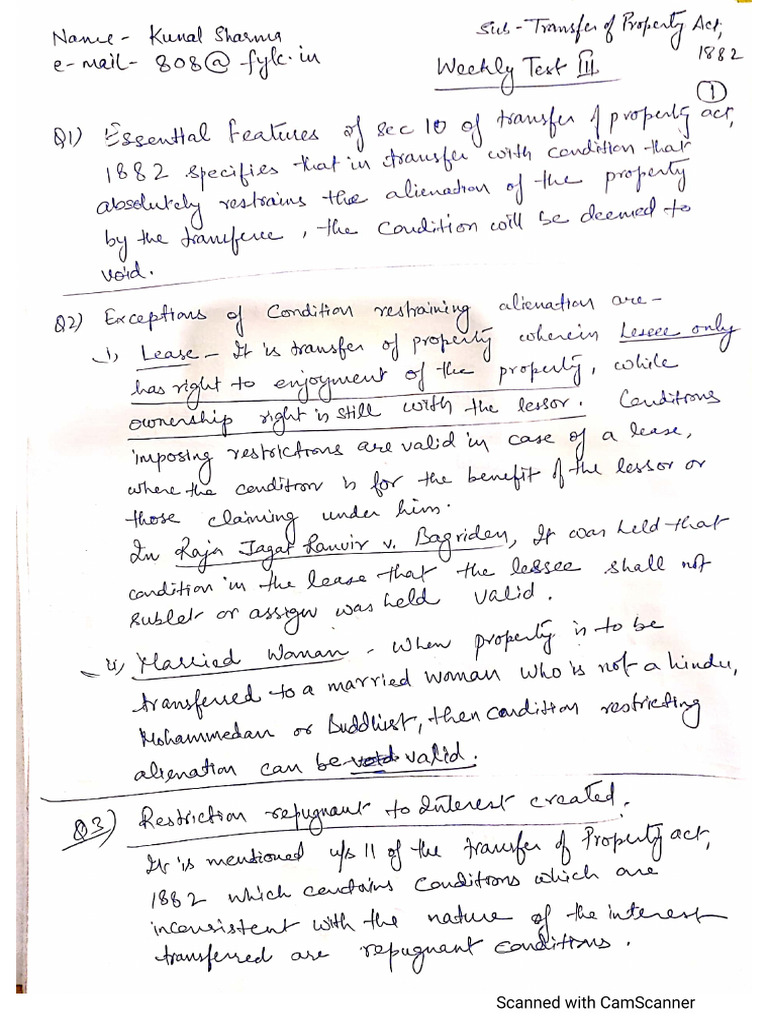 Name - Kunal Sharma
e-mail - 808@fylc.in
Sub - Transfer of Property Act,
1882
Weekly Test III
1
Q1) Essential features of sec 10 of transfer of property act,
1882 specifies that in transfer with condition that
absolutely restrains the alienation of the property
by the transferee, the condition will be deemed to
void.
Q2) Exceptions of Condition restraining alienation are -
i) Lease - It is transfer of property wherein Lessee only
has right to enjoyment of the property, while
ownership right is still with the lessor. Conditions
imposing restrictions are valid in case of a lease,
where the condition is for the benefit of the lessor or
those claiming under him.
In Raja Jagat Ranvir v. Bagriden, It was held that
condition in the lease that the lessee shall not
sublet or assign was held valid.
ii) Married Woman - When property is to be
transferred to a married woman who is not a hindu,
Mohammedan or Buddhist, then condition restricting
alienation can be void valid.
Q3) Restriction repugnant to Interest created.
It is mentioned u/s 11 of the transfer of Property act,
1882 which contains conditions which are
inconsistent with the nature of the interest
transferred are repugnant conditions.
Scanned with CamScanner